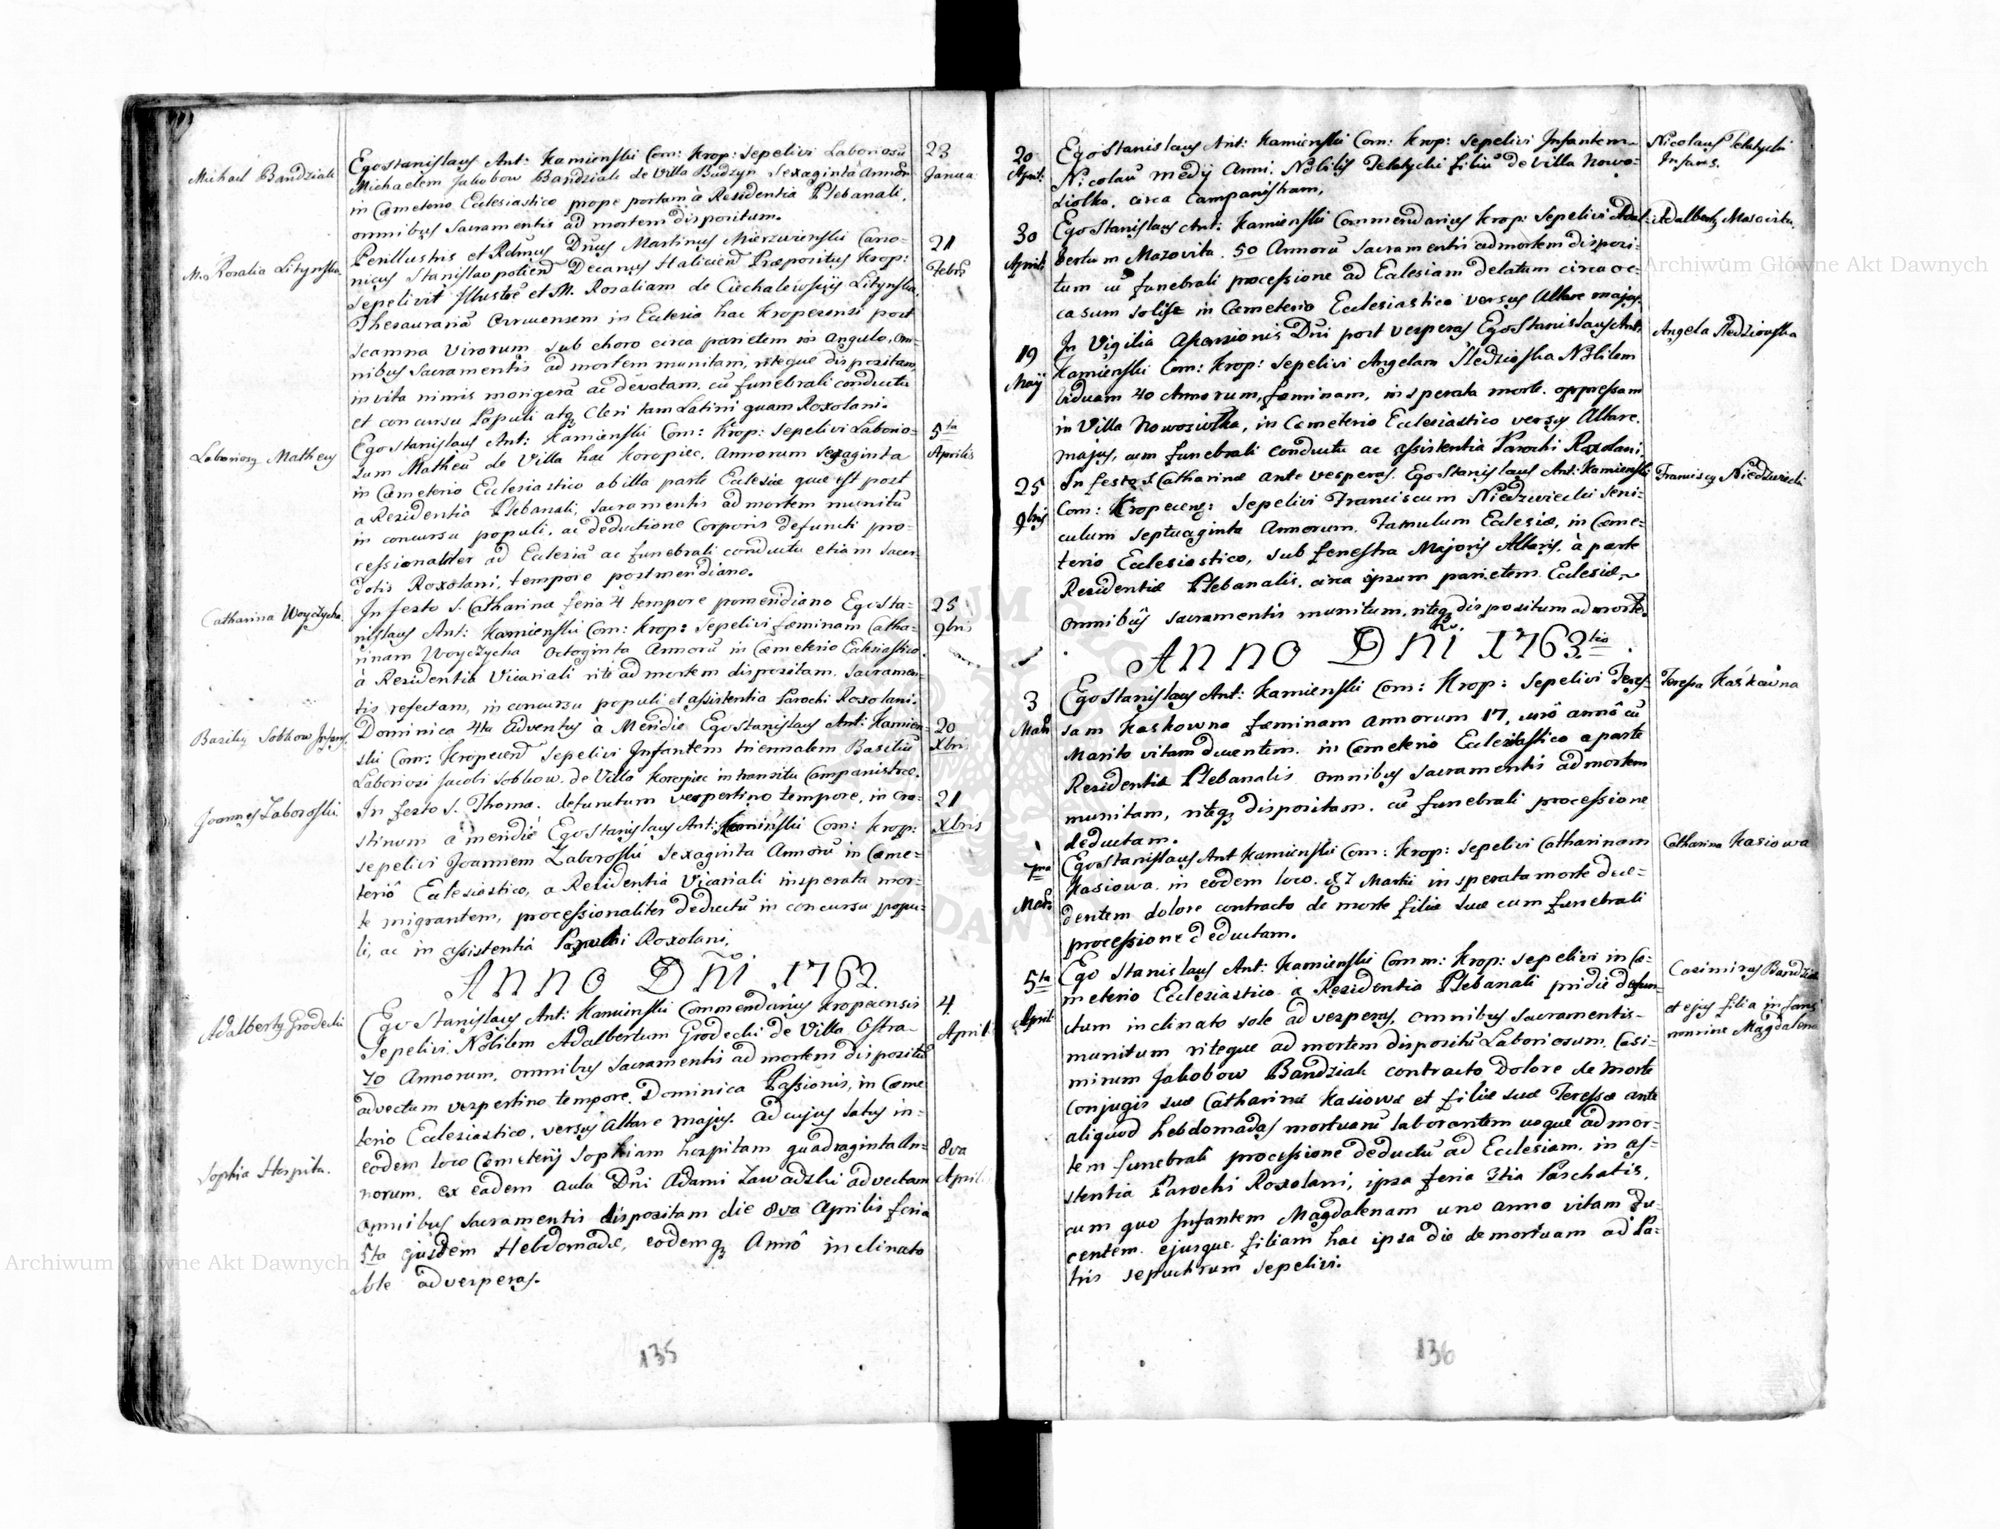 Michael Bandziak
Ego Stanislaus Ant: Kamienski Com: Krop: sepelivi Laboriosũ
23 Janua:
Michaelem Jakobow Bandziak de Villa Budzyn sexaginta Annor̃
in Cæmeterio Ecclesiastico prope portam à Residentia Plebanali,
omnibus Sacramentis ad mortem dispositum.
M. Rosalia Litynska
Perillustris et Rdmus Dnus Martinus Mierzwienski Cano-
21 Febr̃
nicus Stanislaopolien̄ Decanus Haliciens̄ Præpositus Krop:
sepelivit Illustrẽ et M. Rosaliam de Litynska,
Thesaurariã in Eclesia hac Kropecensi post
scamna Virorum sub choro circa parietem in angulo, om-
nibus Sacramentis ad mortem munitam, riteque dispositam,
in vita nimis morigerã ac devotam, cũ funebrali conductu
et concursu Populi atq Cleri tam Latini quam Roxolani.
Laboriosus Matheus
Ego Stanislaus Ant: Kamienski Com: Krop: sepelivi Laborio-
5ta Aprilis
sum Matheũ de Villa hac Koropiec, Annorum sexaginta
in Cæmeterio Ecclesiastico ab illa parte Eclesiæ quæ est post
a Residentia Plebanali, sacramentis ad mortem munitũ
in concursu populi, ac deductione Corporis defuncti pro-
cessionaliter ad Eclesiã ac funebrali conductu etiam Sacer-
dotis Roxolani, tempore postmeridiano.
Catharina Woyczycha
In festo S. Catharinæ feria 4 tempore pomeridiano Ego Sta-
25 9bris
nislaus Ant: Kamienski Com: Krop: sepelivi fæminam Catha-
rinam Woyczycha Octoginta Annorũ in Cæmeterio Eclesiastico
à Residentia Vicariali ritè ad mortem dispositam, Sacramen-
tis refectam, in concursu populi et assistentia Parochi Roxolani.
Basilius Sobkow Infans
Dominica 4ta Adventus à Meridie Ego Stanislaus Ant: Kamien-
20 Xbris
ski Com: Kropecen̄ sepelivi Infantem triennalem Basiliũ
Laboriosi Jacobi Sobkow de Villa Koropiec in transitu Campanistræ.
Joannes Zaboroski
In festo S. Thomæ defunctum vespertino tempore, in cra-
21 Xbris
stinum à meridiè Ego Stanislaus Ant: Kamieński Com: Krop:
sepelivi Joannem Zaboroski sexaginta Annorũ in Cæme-
teriô Eclesiastico, a Residentia Vicariali insperata mor-
te migrantem, processionaliter deductũ in concursu popu-
li, ac in assistentia Parochi Roxolani.
ANNO DÑI 1762.
Adalbertus Grodecki
Ego Stanislaus Ant: Kamienski Commendarius Kropecensis
4 April:
Sepelivi Nobilem Adalbertum Grodecki de Villa Ostra-
70 Annorum, omnibus sacramentis ad mortem dispositũ
advectum vespertino tempore, Dominica Passionis, in Cæme-
terio Ecclesiastico, versus Altare majus. ad cujus latus in-
Sophia Hospita.
eodem loco Cæmeterij Sophiam hospitam quadraginta An-
8va April:
norum, ex eadem aula Dñi Adami Zawadzki advectam
omnibus sacramentis dispositam die 8va Aprilis feria
5ta ejusdem Hebdomadæ, eodemq Annô inclinato
sole ad vesperas.
135
20 April:
Ego Stanislaus Ant: Kamienski Com: Krop: sepelivi Infantem
Nicolaus Telatycki Infans.
Nicolaũ medij Anni, Nobilis Telatycki filiũ de Villa Nowo-
siolka, circa Campanistram,
30 Aprili
Ego Stanislaus Ant: Kamienski Commendarius Krop: sepelivi Adal-
Adalbertus Mazovita
bertum Mazovita 50 Annorũ sacramentis ad mortem disposi-
tum cũ funebrali processione ad Eclesiam delatum circa oc-
casum solis in Cæmeterio Ecclesiastico versus Altare majus.
19 Maij
In Vigilia Ascensionis Dñi post vesperas Ego Stanislaus Ant:
Angela Sledziowska
Kamienski Com: Krop: sepelivi Angelam Sledzioska Nobilem
viduam 40 Annorum, fæminam, insperata morte oppressam
in Villa Nowosiolka, in Cæmeterio Ecclesiastico versus Altare
majus, cum funebrali conductu ac assistentia Parochi Roxolani.
25 9bris
In festo S Catharinæ ante vesperas Ego Stanislaus Ant: Kamienski
Franciscus Niedzwiecki
Com: Kropecens: sepelivi Franciscum Niedzwiecki seni-
culum septuaginta Annorum, Famulum Eclesiæ, in Cæme-
terio Ecclesiastico, sub fenestra Majoris Altaris, à parte
Residentiæ Plebanalis, circa ipsum parietem Eclesiæ,
omnibus sacramentis munitum, riteq dispositum ad mortẽ.
ANNO DÑI 1763tio
3 Martij
Ego Stanislaus Ant: Kamienski Com: Krop: sepelivi Teres-
Teressa Kaskowna
sam Kaskowna fæminam annorum 17, unô annô cũ
Marito vitam ducentem in Cæmeterio Ecclesiastico a parte
Residentiæ Plebanalis omnibus sacramentis ad mortem
munitam, riteq dispositam, cũ funebrali processione
deductam.
7ma Martij
Ego Stanislaus Ant Kamienski Com: Krop: sepelivi Catharinam
Catharina Kasiowa
Kasiowa in eodem loco & 7 Martii insperata morte dece-
dentem dolore contracto de morte filiæ suæ cum funebrali
processione deductam.
5ta April:
Ego Stanislaus Ant: Kamienski Comm: Krop: sepelivi in Cæ-
Casimirus Bandziak
meterio Ecclesiastico à Residentia Plebanali pridie defun-
et ejus filia infans
ctum inclinato sole ad vesperas, omnibus sacramentis
nomine Magdalena
munitum riteque ad mortem dispositũ Laboriosum Casi-
mirum Jakobow Bandziak contracto dolore de morte
Conjugis suæ Catharinæ Kasiowæ et filiæ suæ Teressæ ante
aliquod hebdomadas mortuarũ laborantem usque ad mor-
tem funebrali processione deductũ ad Ecclesiam, in as-
sistentia Parochi Roxolani, ipsa feria 3tia Paschatis,
cum quo Infantem Magdalenam uno anno vitam du-
centem ejusque filiam hac ipsa die demortuam ad Pa-
tris sepulchrum sepelivi.
136
Archiwum Główne Akt Dawnych
Archiwum Główne Akt Dawnych